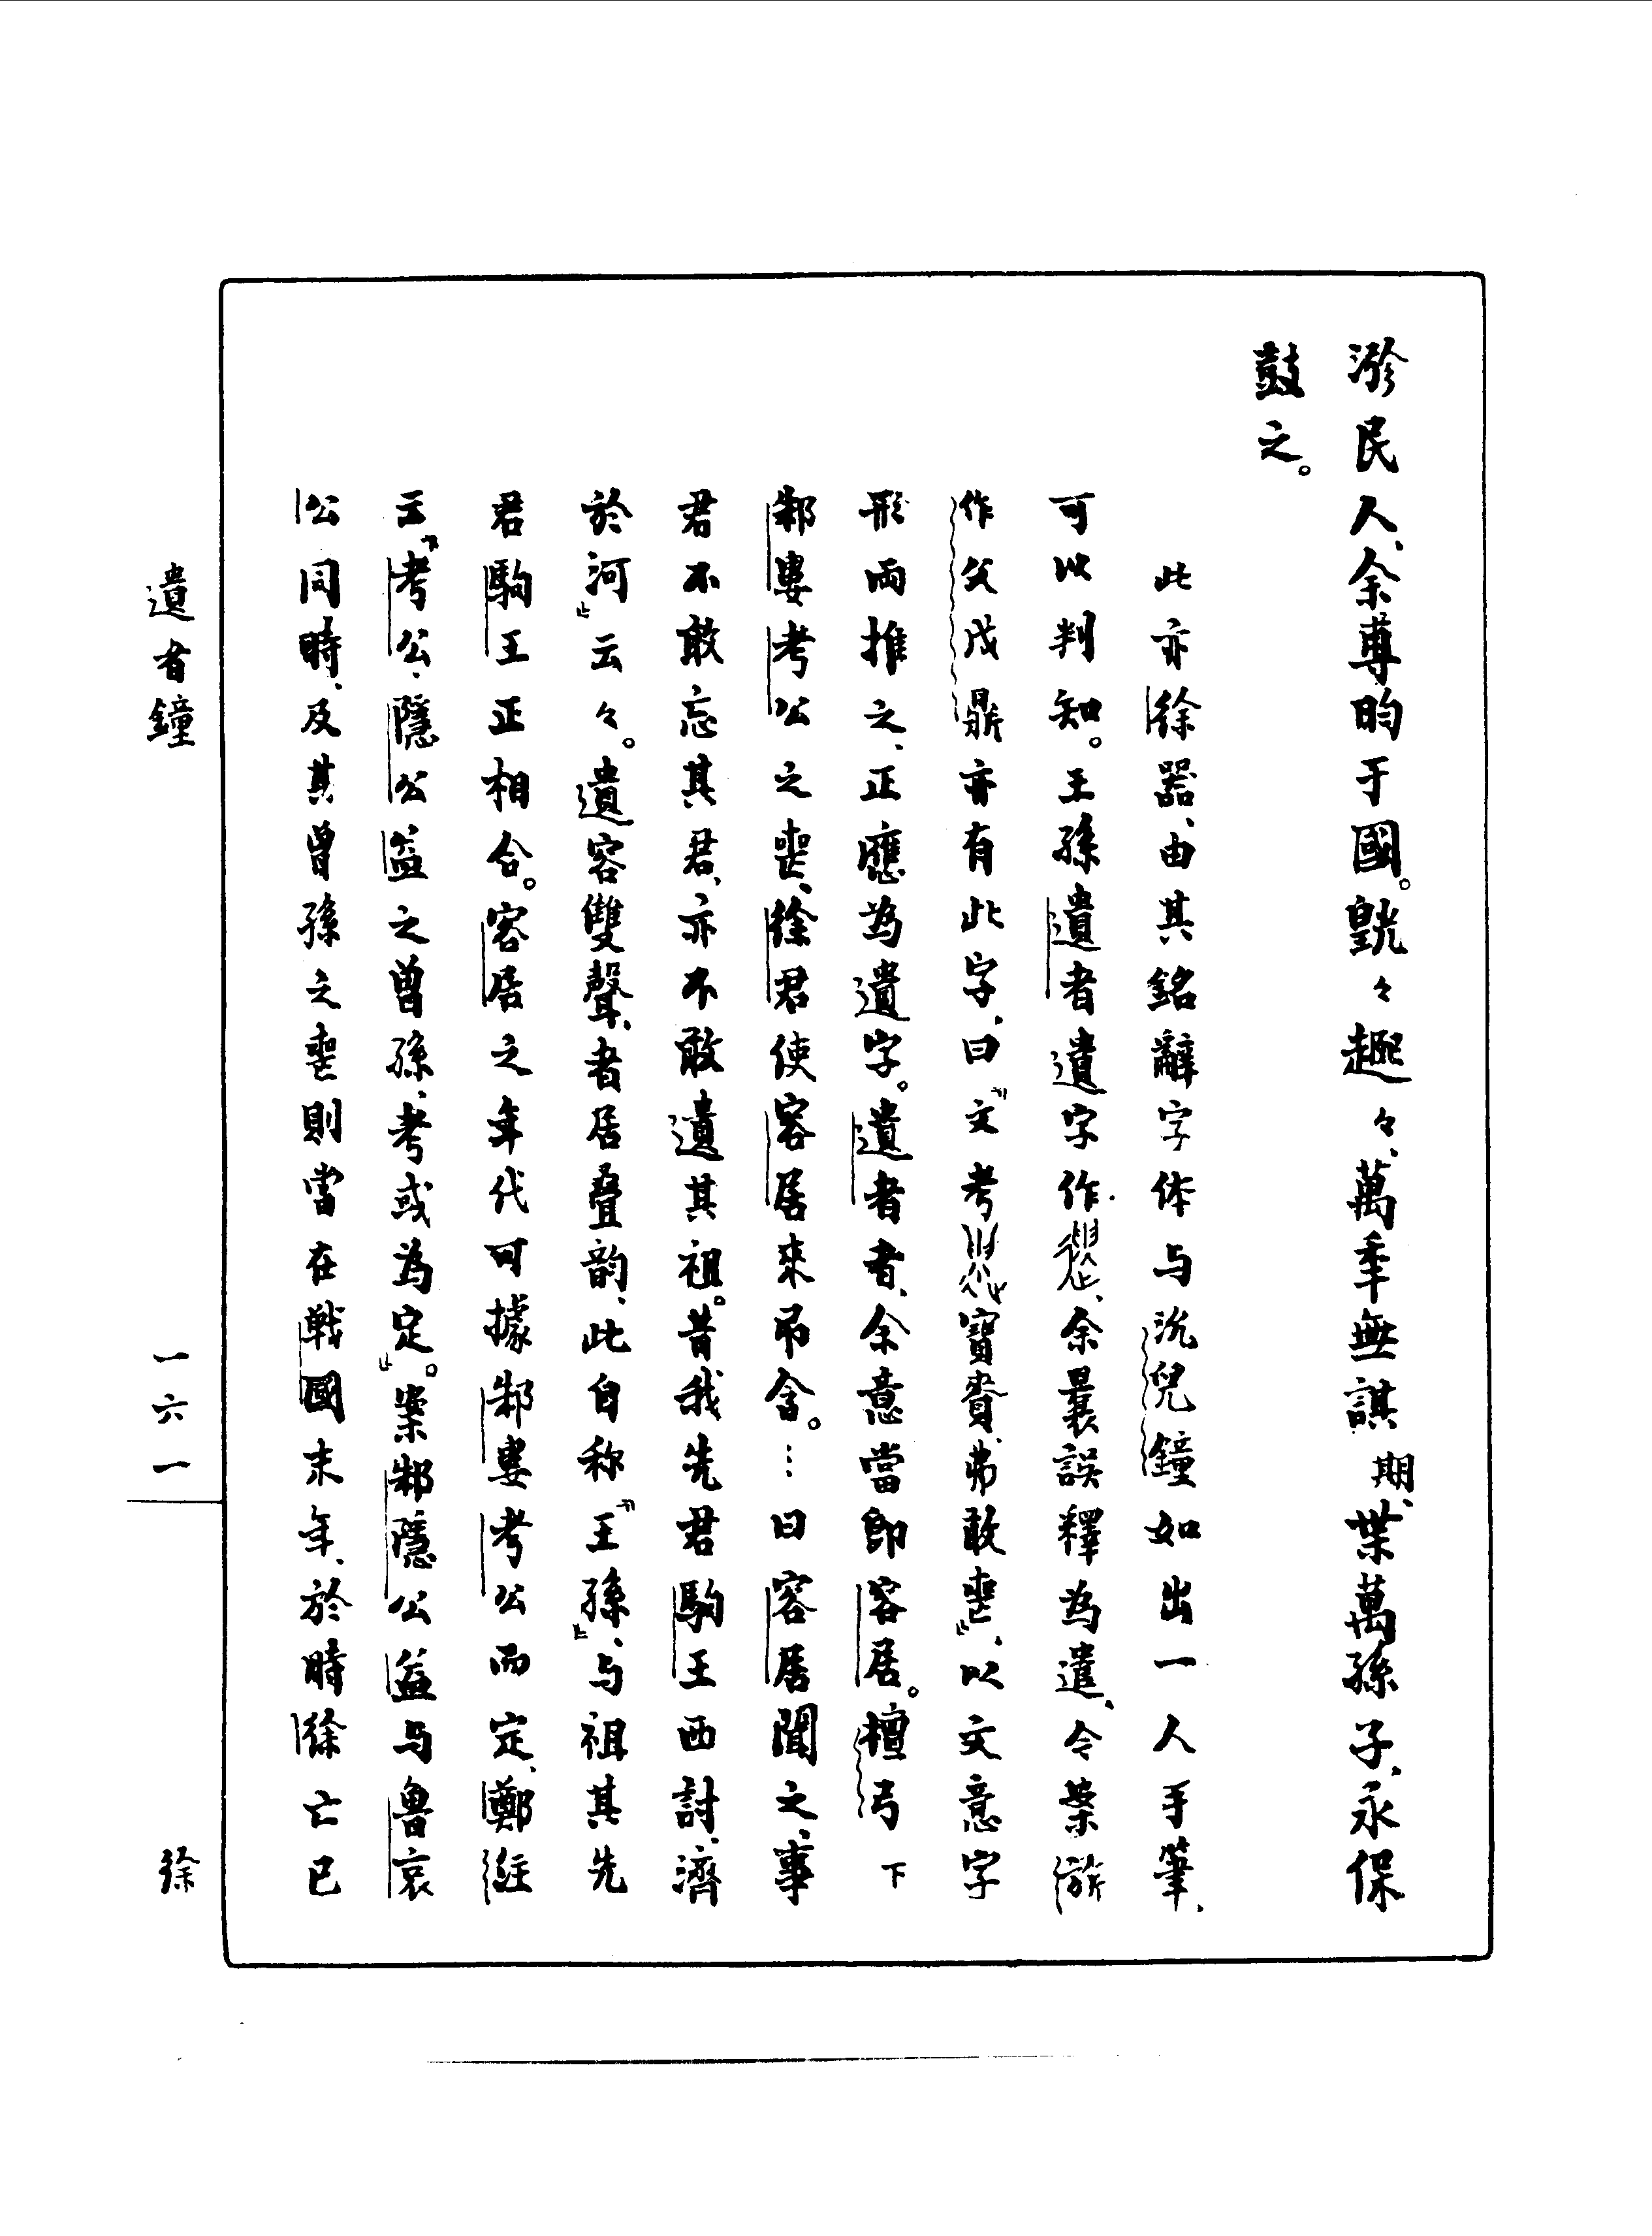 民人、余尃昀于國。皝々趩々、萬年無諆期、枼萬孫子、永保
鼓之。
此亦徐器、由其銘辭字体与沇兒鐘如出一人手筆、
可以判知。王孫遺者遺字作、余曩誤釋為遣、今案旂
作父戊鼎亦有此字、曰『文考寶賁、弗敢喪』、以文意字
形而推之、正應為遺字。遺者者、余意當即容居。檀弓下
邾婁考公之喪、徐君使容居來弔含。…曰容居聞之、事
君不敢忘其君、亦不敢遺其祖。昔我先君駒王西討、濟
於河』云々。遺容雙聲、者居叠韵、此自称『王孫』、与祖其先
君駒王正相合。容居之年代可據邾婁考公而定、鄭注
云『考公、隱公益之曾孫、考或為定』。案邾隱公益与魯哀
公同時、及其曾孫之喪則當在戰國末年、於時徐亡已
遺者鐘
一六一
徐